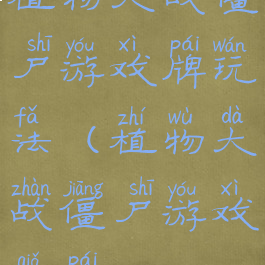 植物大战僵
shī yóu xì pái wán
尸游戏牌玩
fǎ zhí wù dà
法（植物大
zhàn jiāng shī yóu xì
战僵尸游戏
pái